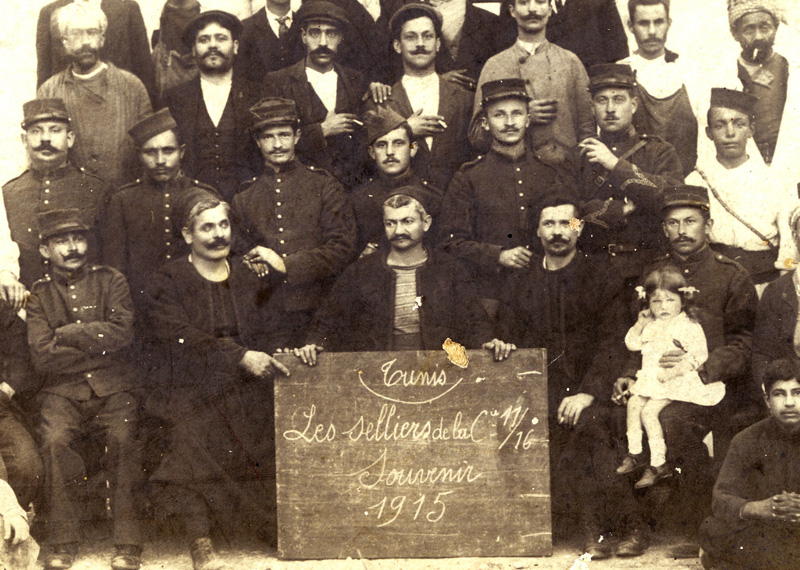 Tunis
Les Selliers de la Cie 11/16
Souvenir
1915